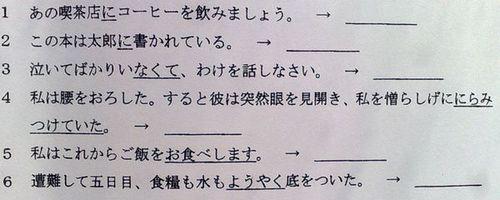 1 あの喫茶店にコーヒーを飲みましょう。 → ________
2 この本は太郎に書かれている。 → ________
3 泣いてばかりいなくて、わけを話しなさい。 → ________
4 私は腰をおろした。すると彼は突然眼を見開き、私を憎らしげににらみ
つけていた。 → ________
5 私はこれからご飯をお食べします。 → ________
6 遭難して五日目、食糧も水もようやく底をついた。 → ________